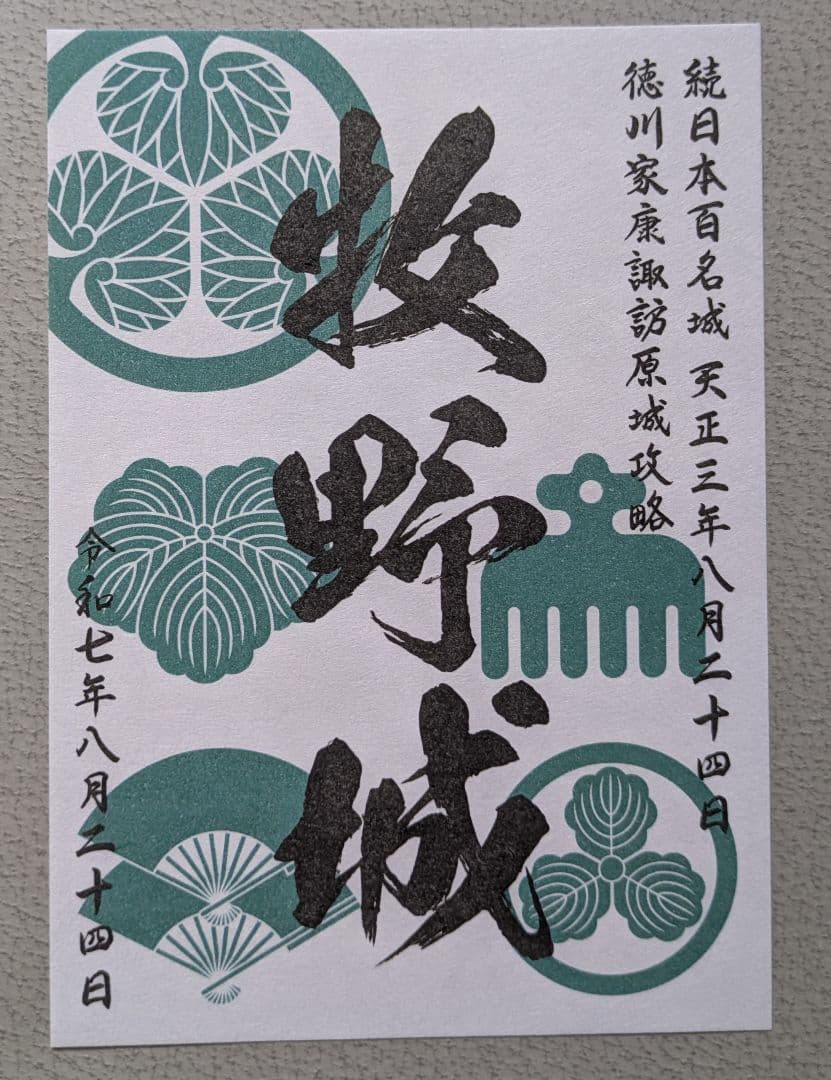 続日本百名城 天正三年八月二十四日
徳川家康諏訪原城攻略
牧野城
令和七年八月二十四日